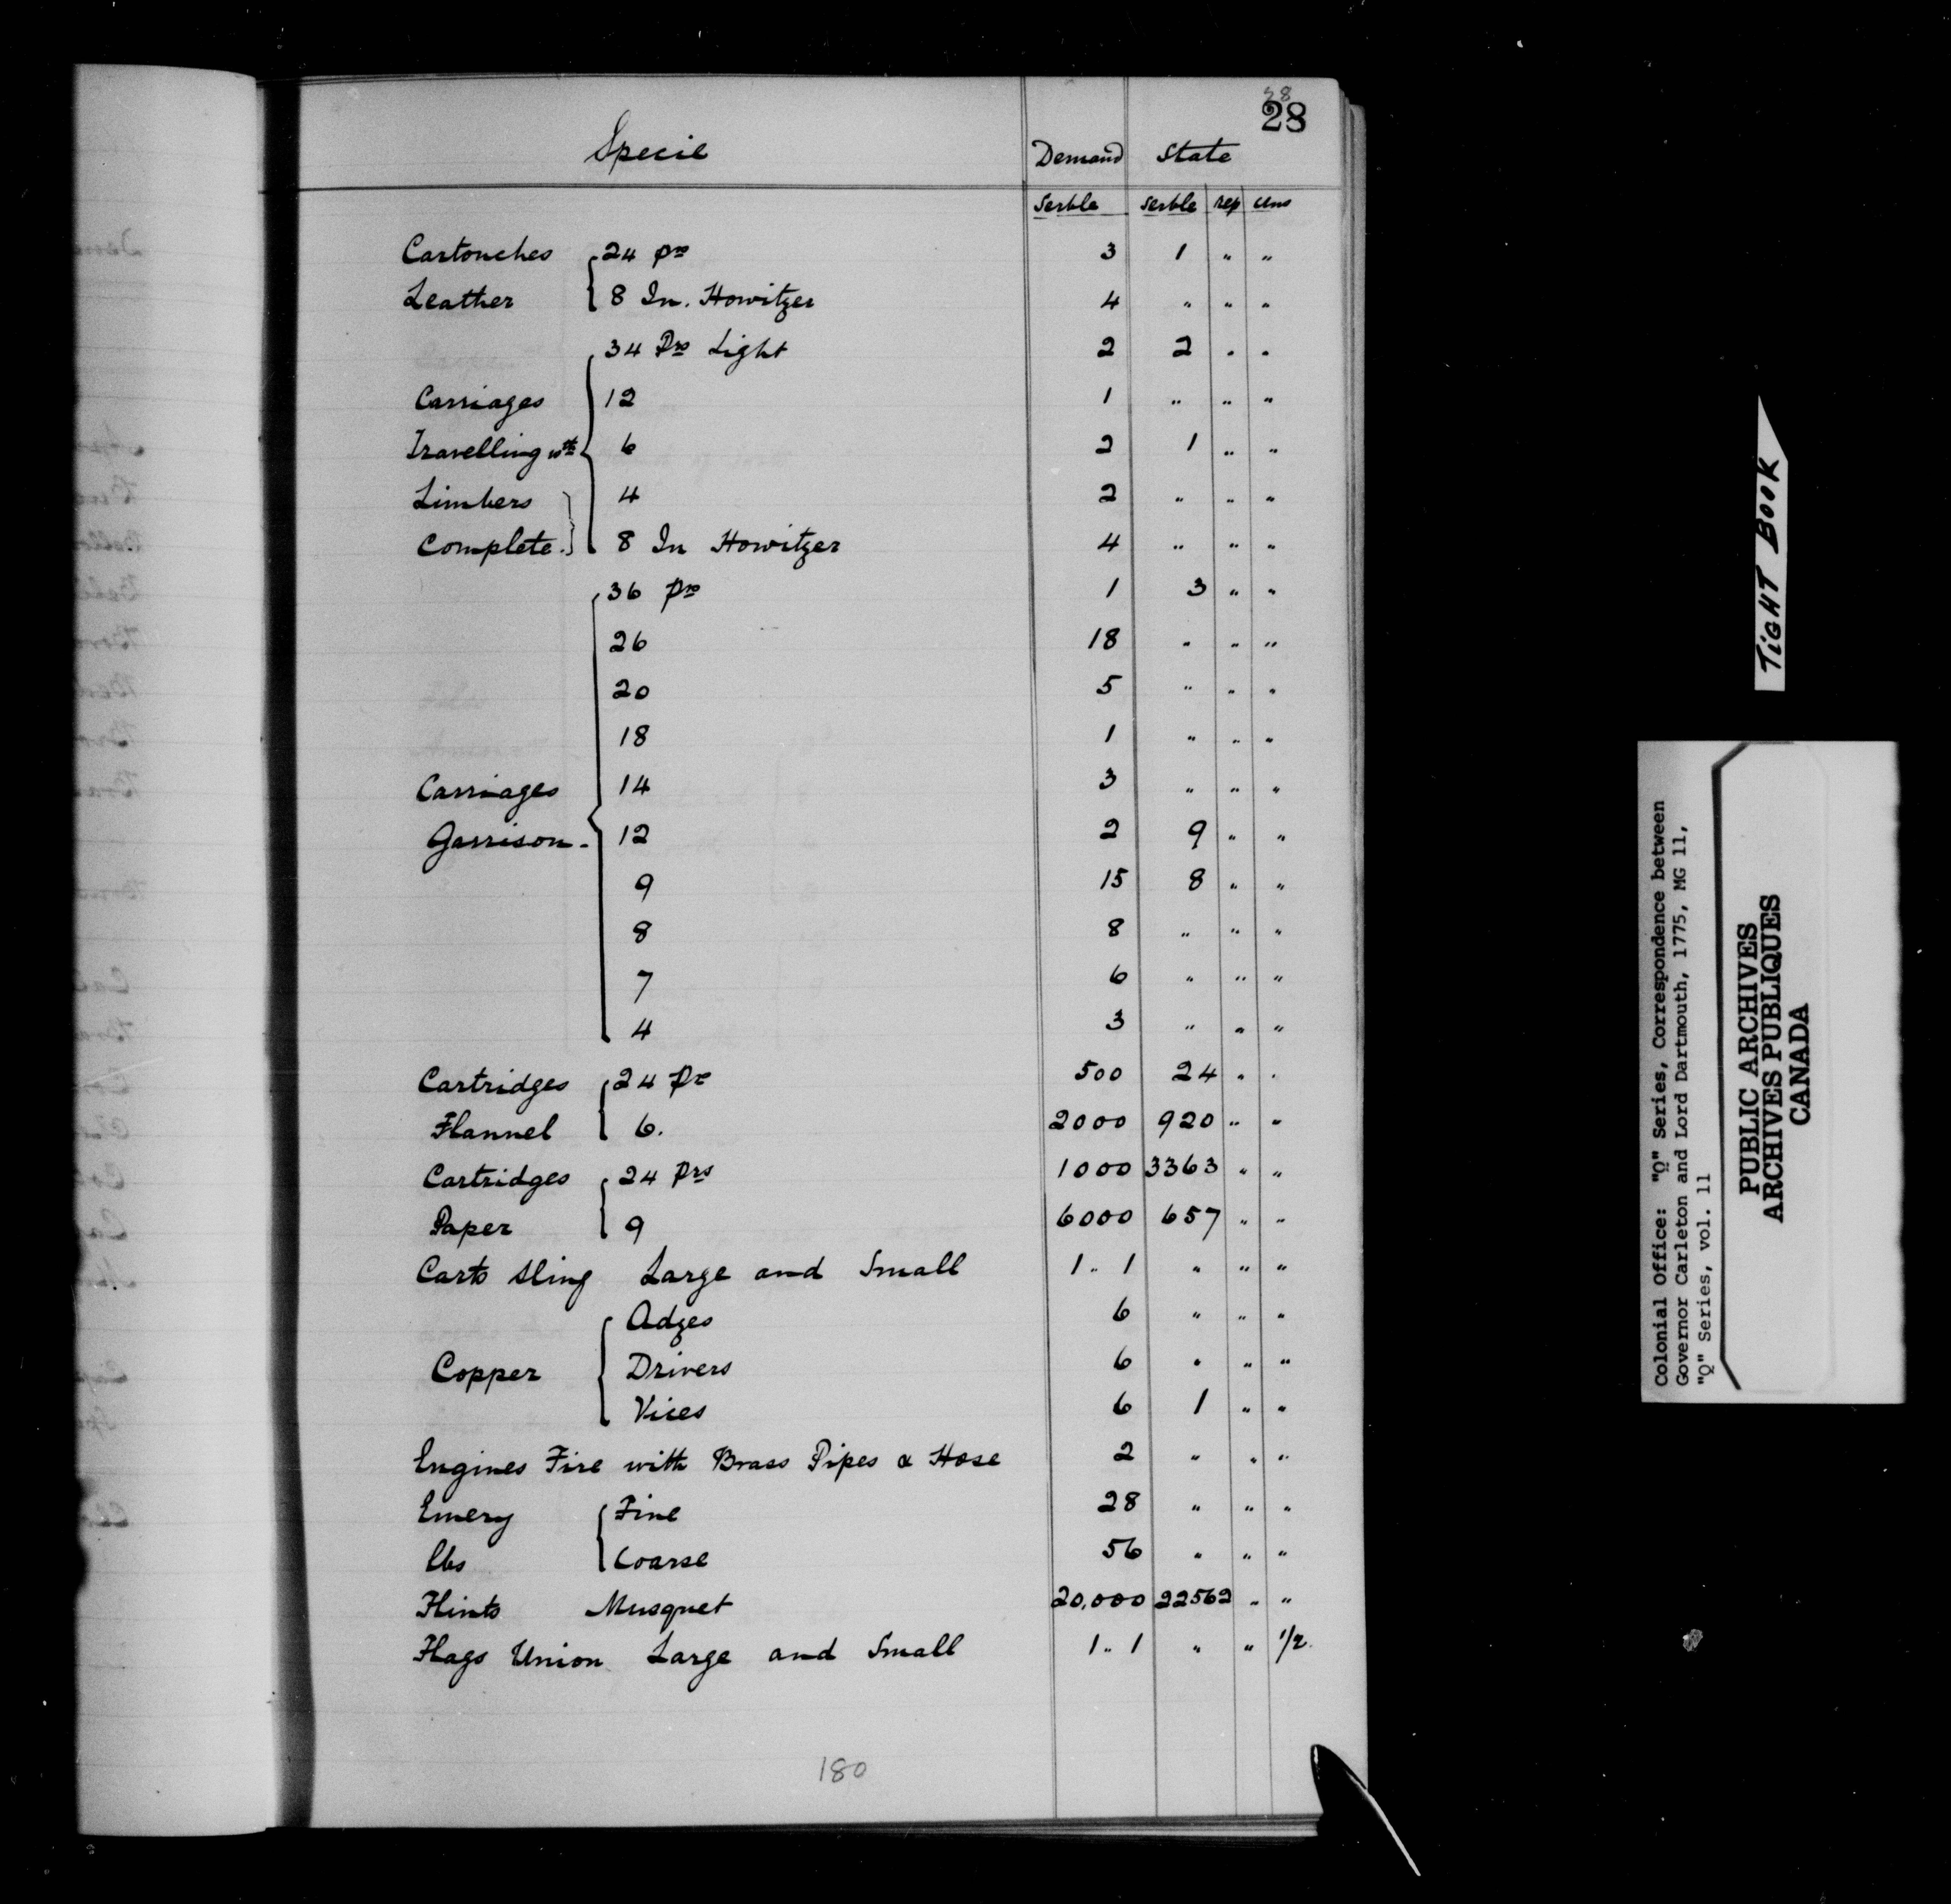 28
28
Specie Demand State
Serble Serble rep uns
Cartouches { 24 pr 3 1 " "
Leather { 8 In. Howitzer 4 " " "
34 Prs Light 2 2 " "
Carriages 12 1 " " "
Travelling wth { 6 2 1 " "
Limbers 4 2 " " "
Complete. } 8 In Howitzer 4 " " "
36 prs 1 3 " "
26 18 " " "
20 5 " " "
18 1 " " "
Carriages 14 3 " " "
Garrison - { 12 2 9 " "
9 15 8 " "
8 8 " " "
7 6 " " "
4 3 " " "
Cartridges { 24 Pr 500 24 " "
Flannel { 6. 2000 920 " "
Cartridges { 24 Prs 1000 3363 " "
Paper { 9 6000 657 " "
Carts Sling Large and Small 1 " 1 " " "
Adzes 6 " " "
Copper { Drivers 6 " " "
Vices 6 1 " "
Engines Fire with Brass Pipes & Hose 2 " " "
Emery { Fine 28 " " "
lbs { Coarse 56 " " "
Flints Musquet 20,000 22562 " "
Flags Union Large and Small 1 " 1 " " 1/2.
180
TIGHT BOOK
Colonial Office: "Q" Series, Correspondence between
Governor Carleton and Lord Dartmouth, 1775, MG 11,
"Q" Series, vol. 11
PUBLIC ARCHIVES
ARCHIVES PUBLIQUES
CANADA